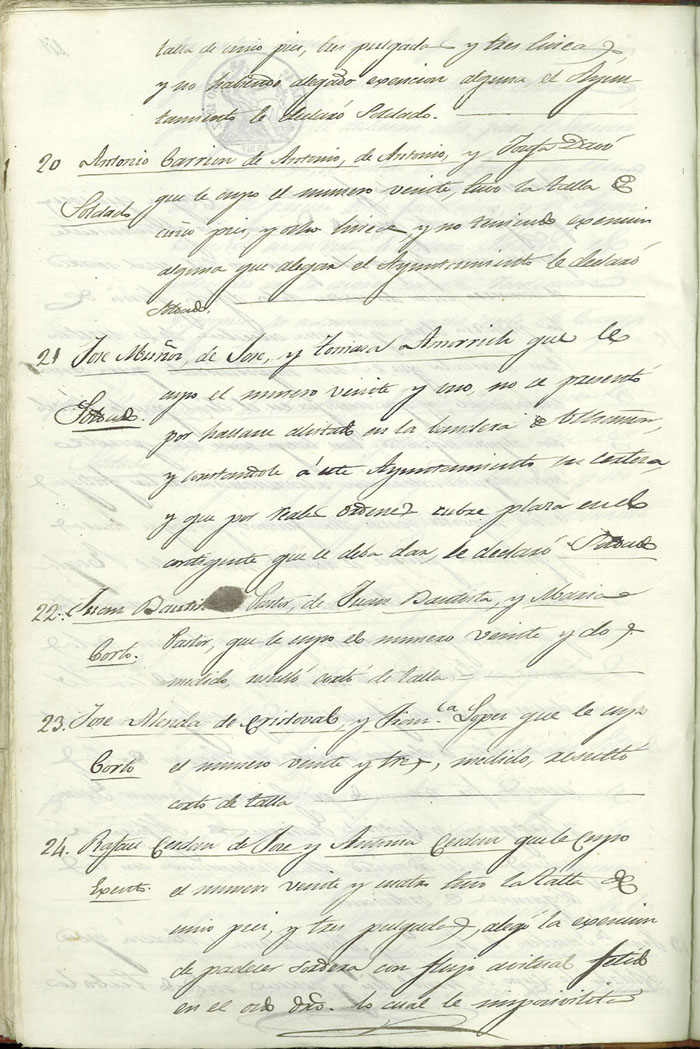 talla de cinco pies, tres pulgadas y tres lineas
y no habiendo alegado exencion alguna, el Ayun
tamiento le declaró Soldado.
20 Antonio Carrion de Antonio, de Antonio, y Josefa
Soldado que le cupo el numero veinte, tuvo la talla de
cinco pies, y ocho lineas, y no teniendo exencion
alguna que alegar el Ayuntamiento le declaró
Soldado.
21 Jose Muñoz, de Jose, y Tomasa Amorrich que le
cupo el numero veinte y uno, no se presentó
Soldado. por hallarse alistado en la bandera de
y constandole á este Ayuntamiento su certeza
y que por reales ordenes cubre plaza en el
contingente que se deba dar, le declaró Soldado
22. Juan Pastor, de Juan Bautista, y Maria
Corto. Pastor, que le cupo el numero veinte y dos
medido, resultó corto de talla
23. Jose de Cristoval, y Fran.ca Lopez que le cupo
Corto el numero veinte y tres, medido, resultó
corto de talla
24. Rafael Cerdan de Jose y Antonia Cerdan que le cupo
Exento. el numero veinte y cuatro tuvo la talla de
cinco pies, y tres pulgadas, alegó la exencion
de padecer sordera con flujo fetido
en el oido dro. lo cual le imposivilita